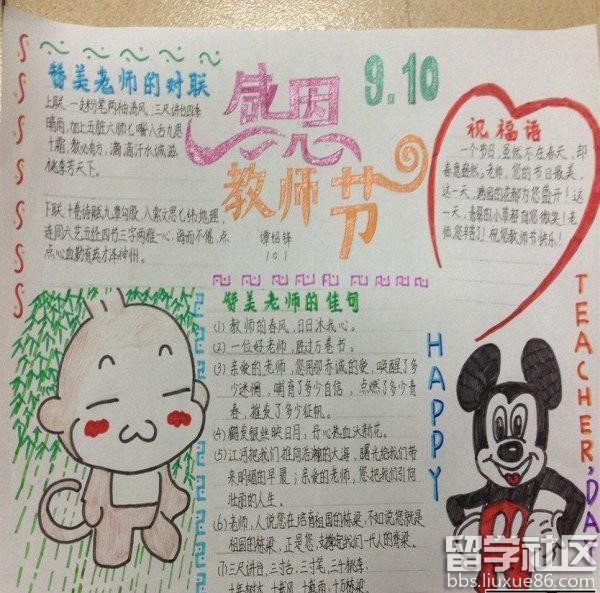 赞美老师的对联
上联、一支粉笔两袖清风、三尺讲台四季
晴雨,加上五脏六腑七嘴八舌九思
十霜,教必有方,滴滴汗水诚滋
桃李芳天下。
下联、十卷诗赋九章勾股,八索文思七纬地理,
连同六艺五经四书三字两雅一心,诲而不倦,点
点心血勤育英才泽神州。
感恩
教师节
9.10
谭
101
祝福语
一个节日,虽然不在春天,却
春意盎然。老师,您的节日最美,
这一天,满园的花都为您盛开!这
一天,青翠的小草都向您微笑!老
师,您辛苦了!祝您教师节快乐!
赞美老师的佳句
(1) 教师的春风,日日沐我心。
(2) 一位好老师,胜过万卷书。
(3) 亲爱的老师,您用那赤诚的爱,唤醒了多
少迷惘,哺育了多少自信,点燃了多少青
春,摧发了多少征帆。
(4) 鹤发银丝映日月,丹心热血沃新花。
(5) 江河把我们推向浩瀚的大海,曙光给我们带
来明媚的早晨;亲爱的老师,您把我们引向
壮丽的人生。
(6) 老师,人说您在培育祖国的栋梁,不如说您就是
祖国的栋梁,正是您,支撑起我们一代人的脊梁。
(7) 三尺讲台,三寸舌,三寸笔,三千桃李;
十年树木,十载风,十载雨,十万栋梁
HAPPY
TEACHER'DAY
留学社区
bbs.liuxue86.com